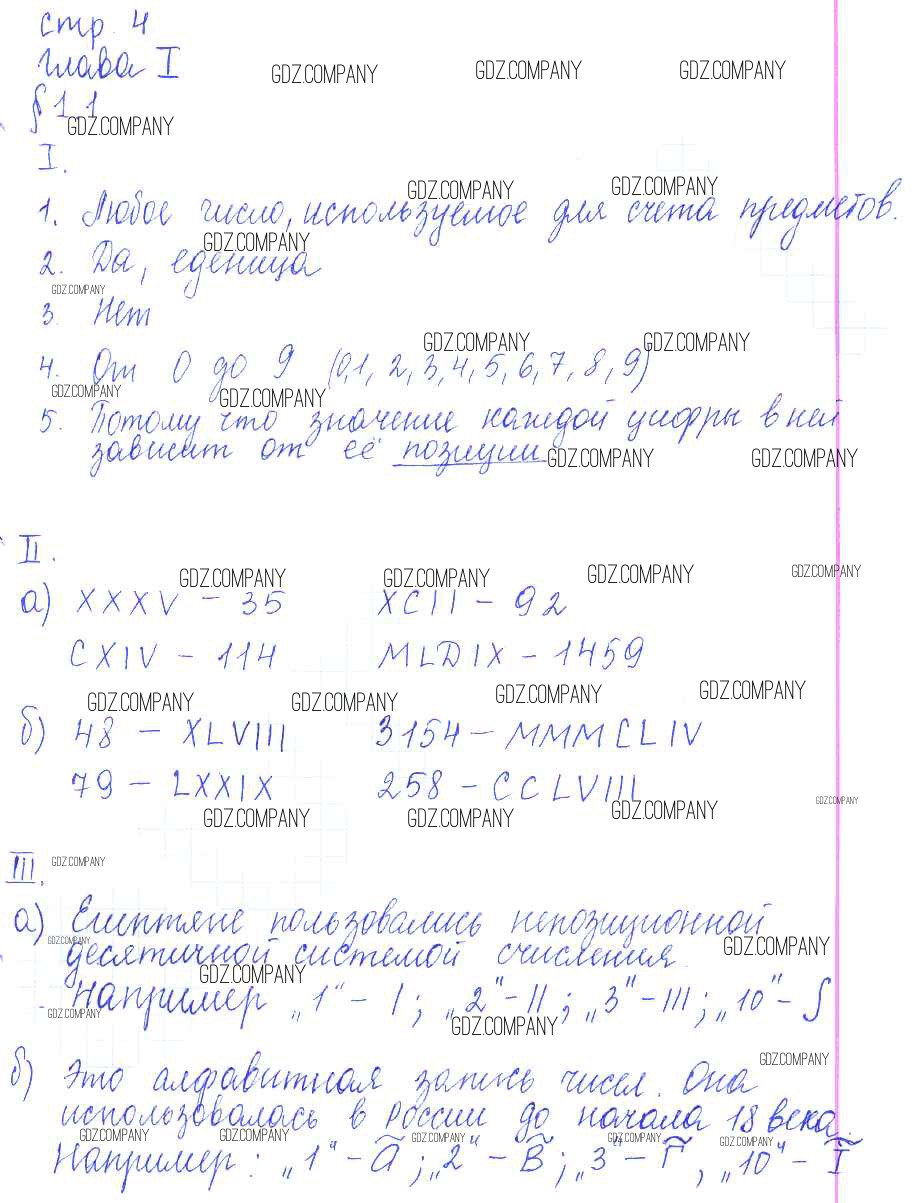 стр. 4
глава I
GDZ.COMPANY GDZ.COMPANY GDZ.COMPANY
§ 1.1
GDZ.COMPANY
I.
GDZ.COMPANY GDZ.COMPANY
1. Любое число, используемое для счета предметов.
GDZ.COMPANY
2. Да, еденица
GDZ.COMPANY
3. Нет
GDZ.COMPANY GDZ.COMPANY
4. От 0 до 9 (0,1, 2, 3, 4, 5, 6, 7, 8, 9)
GDZ.COMPANY GDZ.COMPANY
5. Потому что значение каждой цифры в ней
зависит от её позиции
GDZ.COMPANY GDZ.COMPANY
II.
GDZ.COMPANY GDZ.COMPANY GDZ.COMPANY GDZ.COMPANY
а) XXXV – 35 XCII – 92
CXIV – 114 MLDIX – 1459
GDZ.COMPANY GDZ.COMPANY GDZ.COMPANY GDZ.COMPANY
б) 48 – XLVIII 3154 – MMMCLIV
79 – LXXIX 258 – CCLVIII
GDZ.COMPANY GDZ.COMPANY GDZ.COMPANY GDZ.COMPANY
III.
GDZ.COMPANY
а) Египтяне пользовались непозиционной
GDZ.COMPANY GDZ.COMPANY
десятичной системой счисления.
GDZ.COMPANY
Например „1" – I; „2" – II; „3" – III; „10" – ⋂
GDZ.COMPANY GDZ.COMPANY
GDZ.COMPANY
б) Это алфавитная запись чисел. Она
использовалась в России до начала 18 века.
GDZ.COMPANY GDZ.COMPANY GDZ.COMPANY GDZ.COMPANY GDZ.COMPANY
Например: „1" – а̃; „2" – В̃; „3" – Г̃, „10" – Ĩ